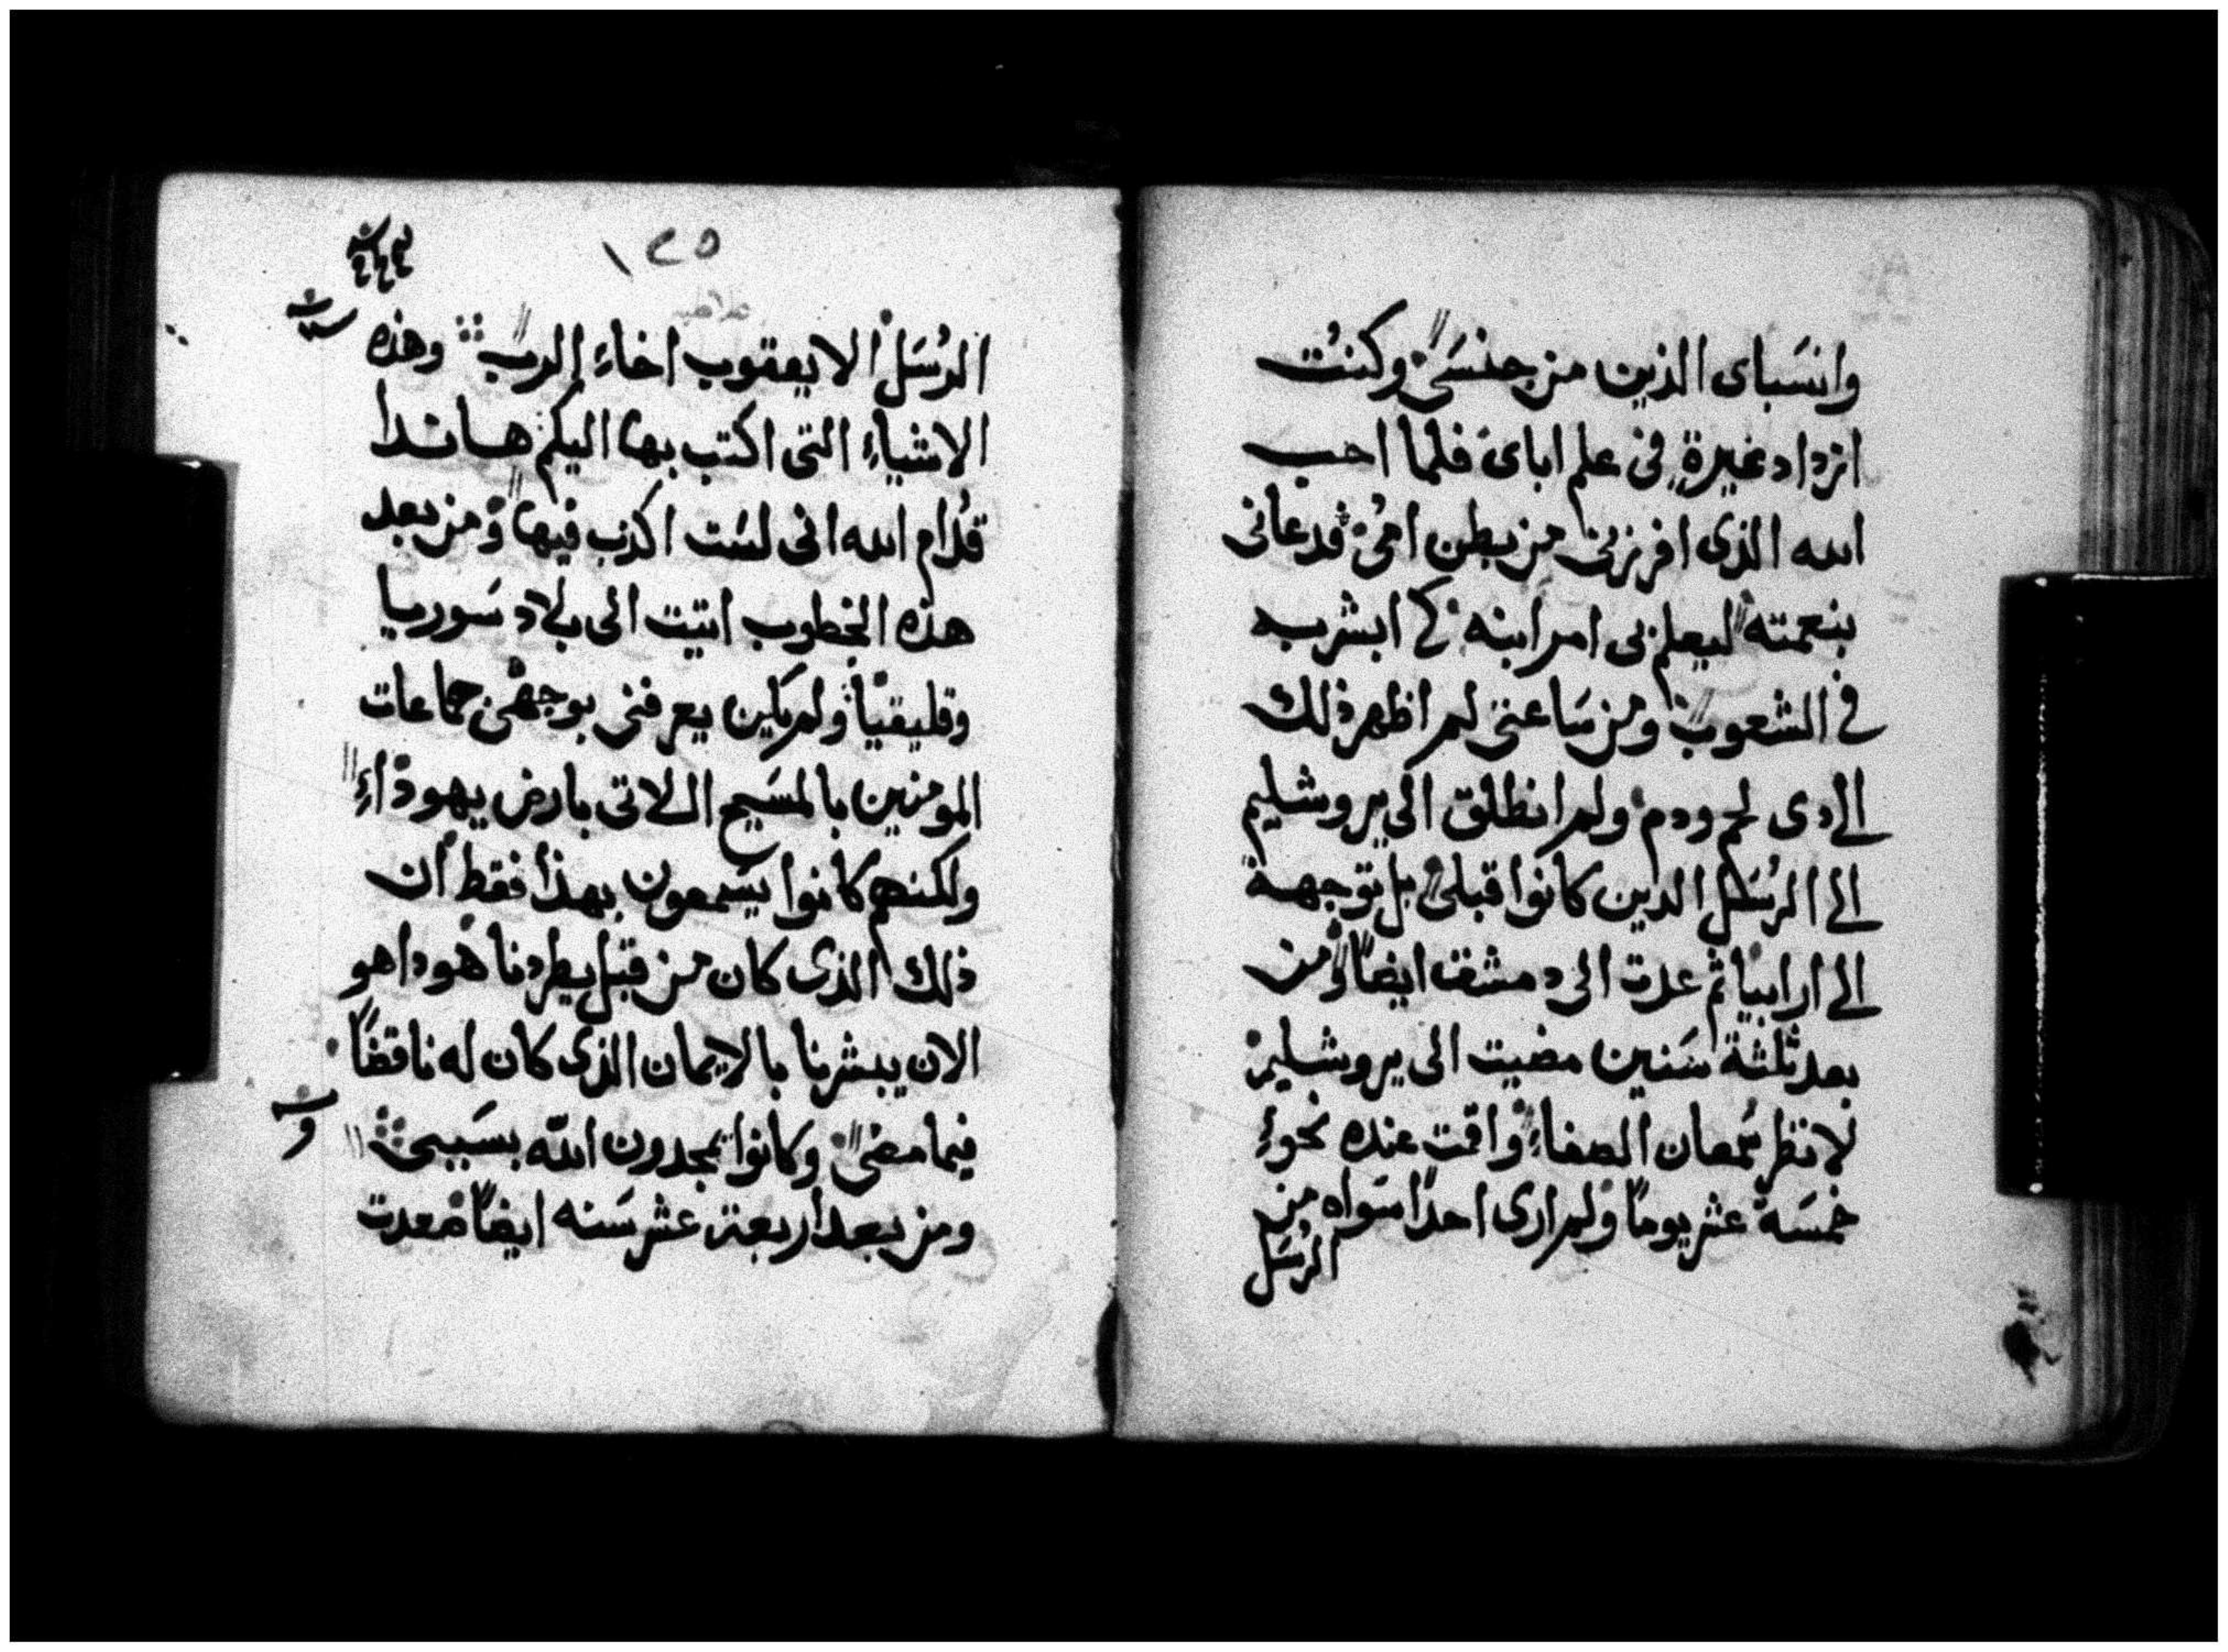 وانسَباى الذين من جنسَىٰ وكنت
ازداد غيرةٍ في علم اباى فلما احب
الله الذى افرزنى من بطن امى قدعانى
بنعمته ليعلن بى امر ابنه كى ابشر به
في الشعوب ومن سَاعتى لم اظهر ذلك
الى دى لحم ودم ولم انطلق الى يروشليم
الى الرسُل الدين كانوا قبلى بل توجهة
الى ارابيا ثم عدت الى دمشق ايضاً ومن
بعد ثلثة سَنين مضيت الى يروشليم
لانظر شمعان الصفاءِ واقمت عنده نحوءِ
خمسَة عشر يوماً ولم ارى احداً سَواه من
الرسَل
١٢٥
الرسُل الا يعقوب اخاءِ الرب وهذه
الاشياءِ التى اكتب بها اليكم هاندا
قدام الله انى لسَت اكذب فيها ومن بعد
هذه الخطوب اتيت الى بلاد سَوريا
وقليقيا ولم يكن يعرفنى بوجهى جماعات
المومنين بالمسَيح اللاتى بارض يهوداءِ
ولكنهم كانوا يسَمعون بهذا فقط ان
ذلك الذى كان من قبل يطردنا هودا هو
الان يبشرنا بالايمان الذى كان له ناقضاً
فيما مضى وكانوا يمجدون الله بسَببى
ومن بعد اربعة عشر سَنه ايضاً صعدت